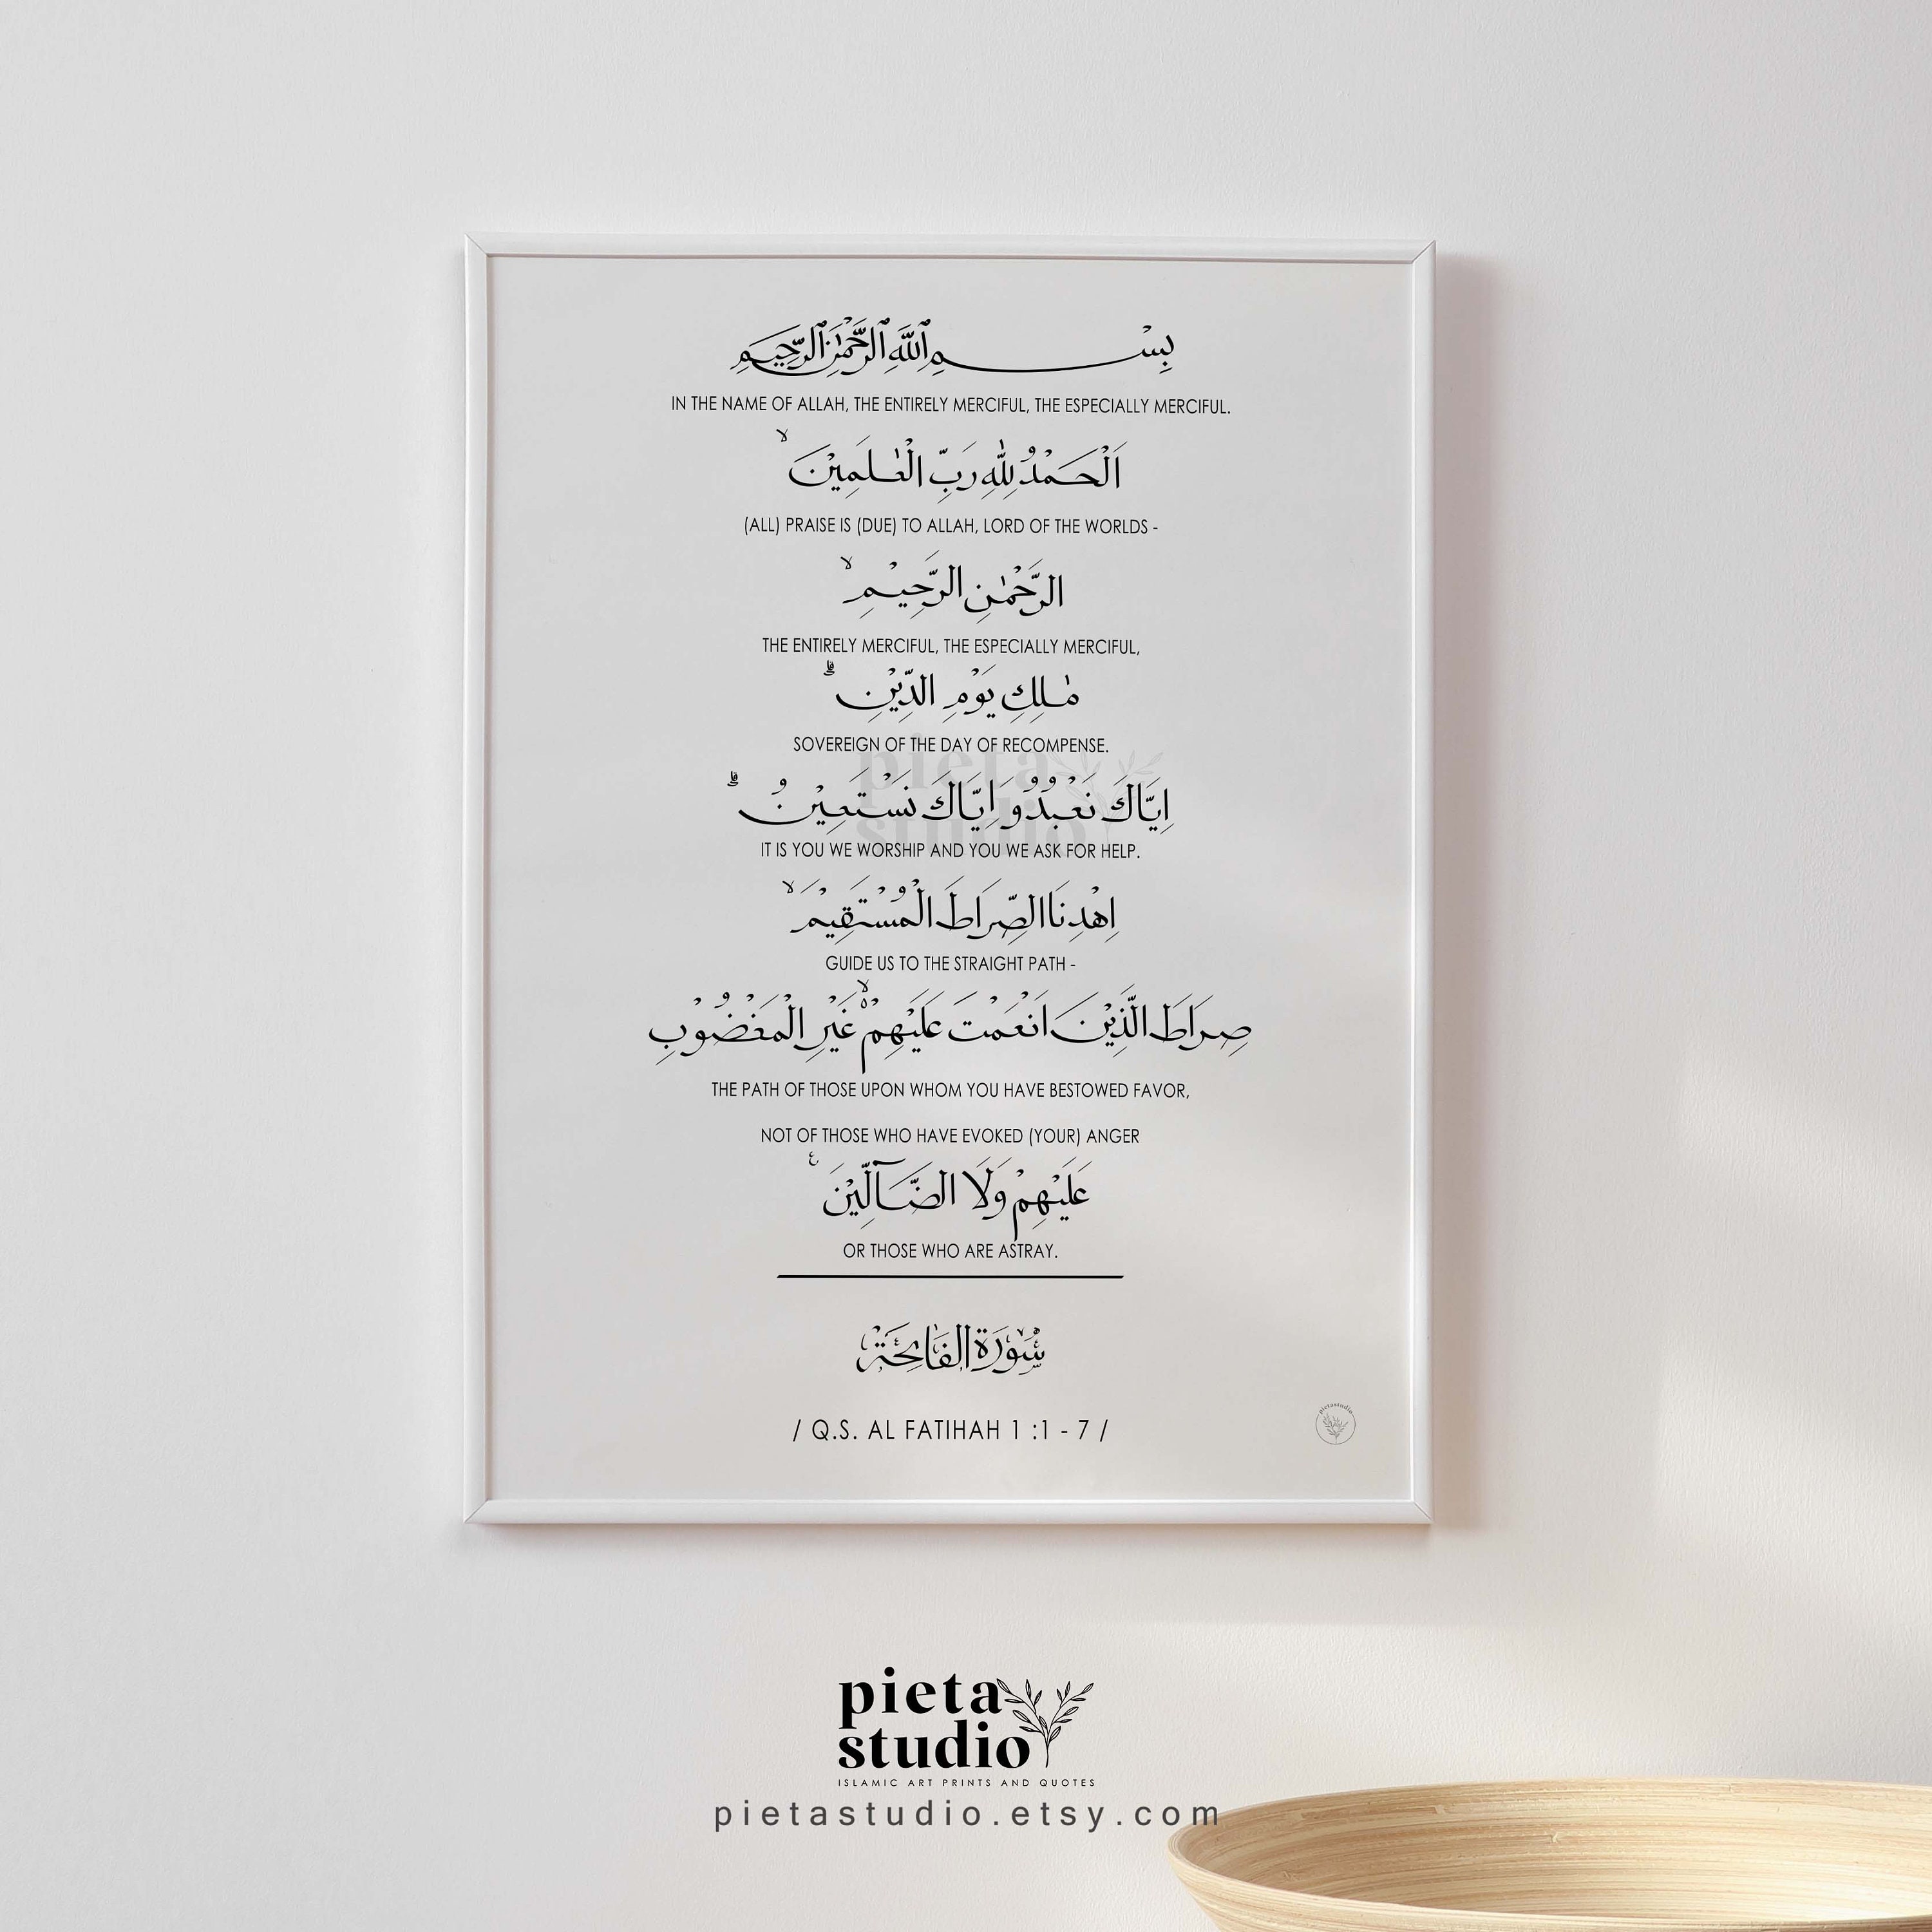 بِسْــــــمِ اللّٰهِ الرَّحْمٰنِ الرَّحِيْمِ
IN THE NAME OF ALLAH, THE ENTIRELY MERCIFUL, THE ESPECIALLY MERCIFUL.
اَلْحَمْدُ لِلّٰهِ رَبِّ الْعٰلَمِيْنَۙ
(ALL) PRAISE IS (DUE) TO ALLAH, LORD OF THE WORLDS -
الرَّحْمٰنِ الرَّحِيْمِۙ
THE ENTIRELY MERCIFUL, THE ESPECIALLY MERCIFUL,
مٰلِكِ يَوْمِ الدِّيْنِۗ
SOVEREIGN OF THE DAY OF RECOMPENSE.
pieta studio
اِيَّاكَ نَعْبُدُ وَاِيَّاكَ نَسْتَعِيْنُۗ
IT IS YOU WE WORSHIP AND YOU WE ASK FOR HELP.
اِهْدِنَا الصِّرَاطَ الْمُسْتَقِيْمَۙ
GUIDE US TO THE STRAIGHT PATH -
صِرَاطَ الَّذِيْنَ اَنْعَمْتَ عَلَيْهِمْ ەۙ غَيْرِ الْمَغْضُوْبِ
THE PATH OF THOSE UPON WHOM YOU HAVE BESTOWED FAVOR,
NOT OF THOSE WHO HAVE EVOKED (YOUR) ANGER
عَلَيْهِمْ وَلَا الضَّاۤلِّيْنَ ع
OR THOSE WHO ARE ASTRAY.
سُوْرَة الفَاتِحَة
/ Q.S. AL FATIHAH 1 :1 - 7 /
pietastudio
pieta
studio
ISLAMIC ART PRINTS AND QUOTES
pietastudio.etsy.com